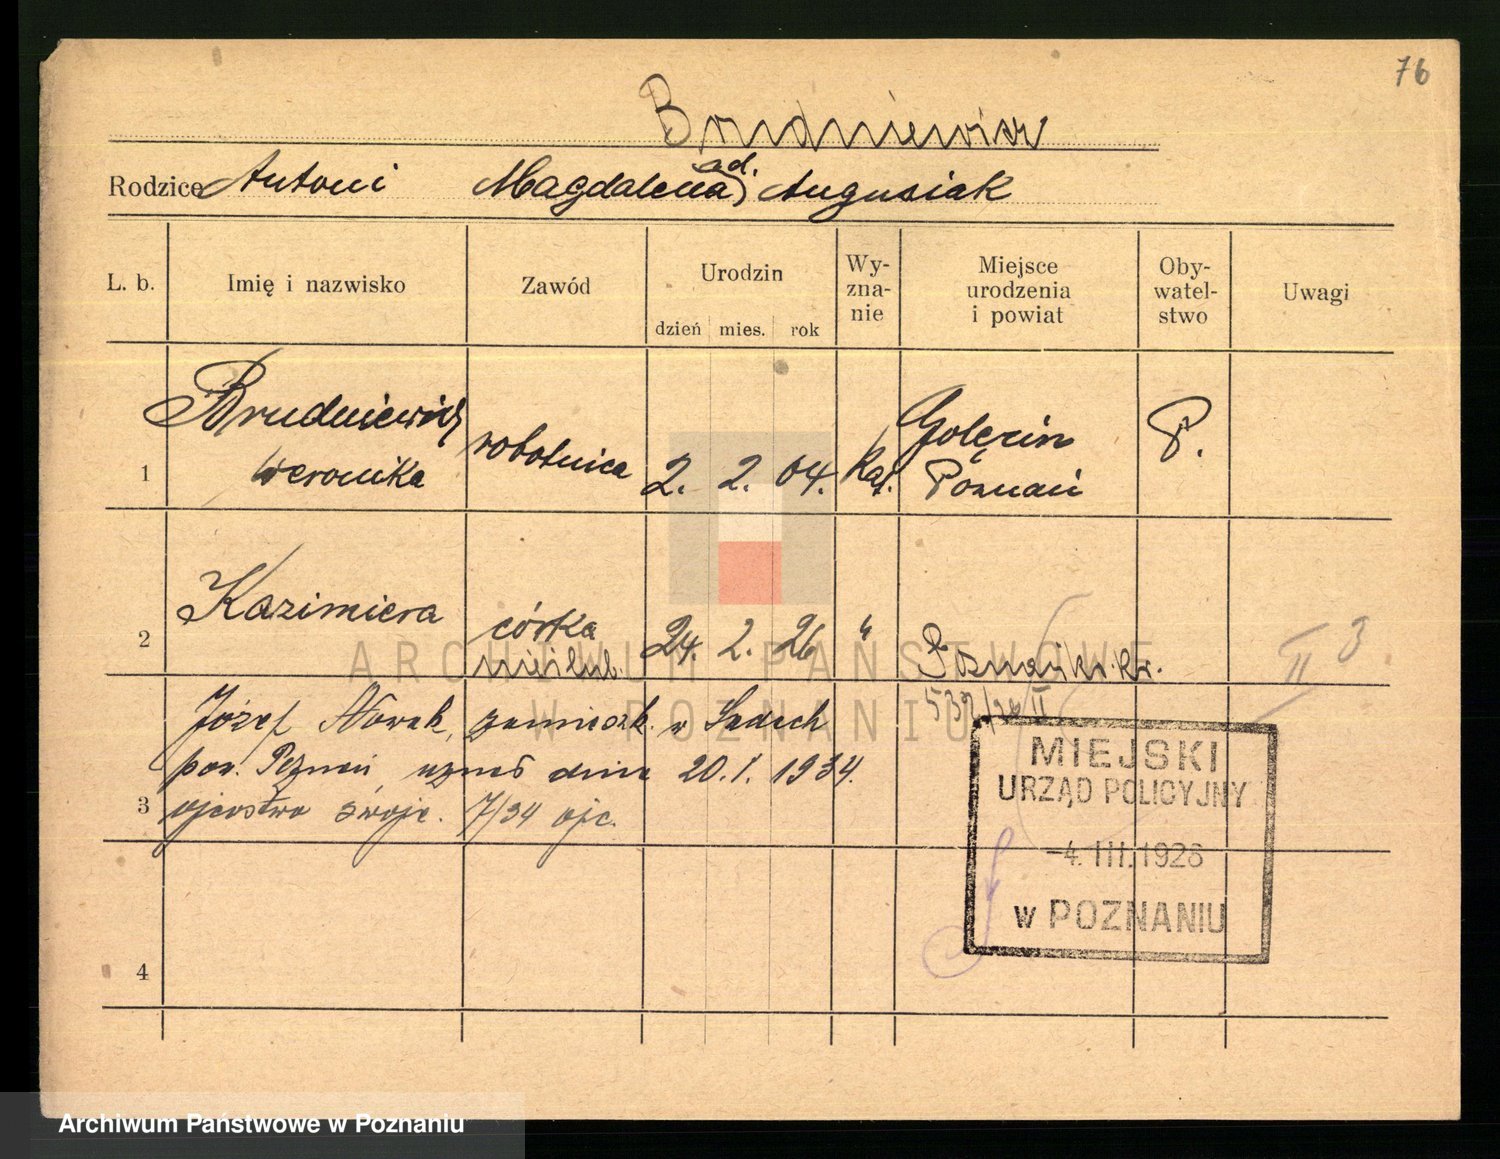 76
Brudniewicz
ad.
Rodzice Antoni Magdalena Augusiak
L. b. Imię i nazwisko Zawód Urodzin dzień mies. rok Wy-zna-nie Miejsce urodzenia i powiat Oby-watel-stwo Uwagi
1 Brudniewicz Weronika robotnica 2. 2. 04. Kat. Golęcin Poznań P.
2 Kazimiera córka nieślub. 24. 2. 26 " Poznań II 3
532/26 II
Józef Nowak, zamieszk. w Sadach
pow. Poznań uznał dnia 20.1.1934.
3 ojcostwo swoje. 7/34 ojc.
MIEJSKI
URZĄD POLICYJNY
-4. III. 1926
w POZNANIU
4
ARCHIWUM PAŃSTWOWE
W POZNANIU
Archiwum Państwowe w Poznaniu